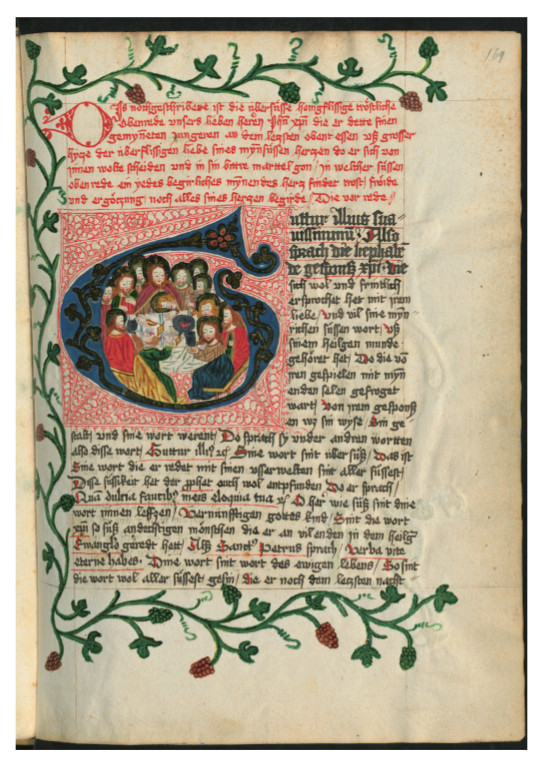 169
Dis nochgeschribede ist die übersüsse honigflissige trostliche
obenrede unsers lieben heren Jhū xp̄i die er dette sinen
gemynten jungeren an dem letsten obent essen uß grosser
hycze der überflissigen liebe sines mynsüssen herczen do er sich von
innen wolte scheiden und in sin bittre marttel gon / in welcher süssen
obenrede ein yedes begirliches mynendes hercz findet trost / froide
und ergöczung noch alles sines herczen begirde / Die vor rede /
Guttur illius sua
uissimum / Also
sprach die
de gesponß xp̄i / die
sich wol und fruntlich
ersprochet het mit irem
liebe / und vil sine myn
richen süssen wort / uß
sinem heilgen munde
gehöret het / Do die vō
iren gespielen mit myn
enden selen gefroget
wart / von irem gesponß
en wz sin wyse / sin ge
stalt / und sine wort werent / Do sprach sy under andren wortten
also disse wort / Guttur illiꝰ ꝛc̄ / Sine wort sint über süß / Was ist
Sine wort die er redet mit sinen usserwelten sint aller süssest /
Disse süssikeit het der ꝓphet ouch wol entpfunden do er sprach /
Quā dulcia faucibꝫ meis eloquia tua ꝛc̄ / O her wie süß sint dine
wort innen leffzen / Vernünfftigen gottes kind / Sint die wort
xp̄i so süß andechtigen mönschen die er an vil enden in dem heilgē
Ewanglō geredt hett / Alß Sanctꝰ Petrus sprach / Verba vite
eterne habes / Dine wort sint wort des ewigen lebens / So sint
die wort wol aller süssest gesin / die er noch dem letzsten nacht